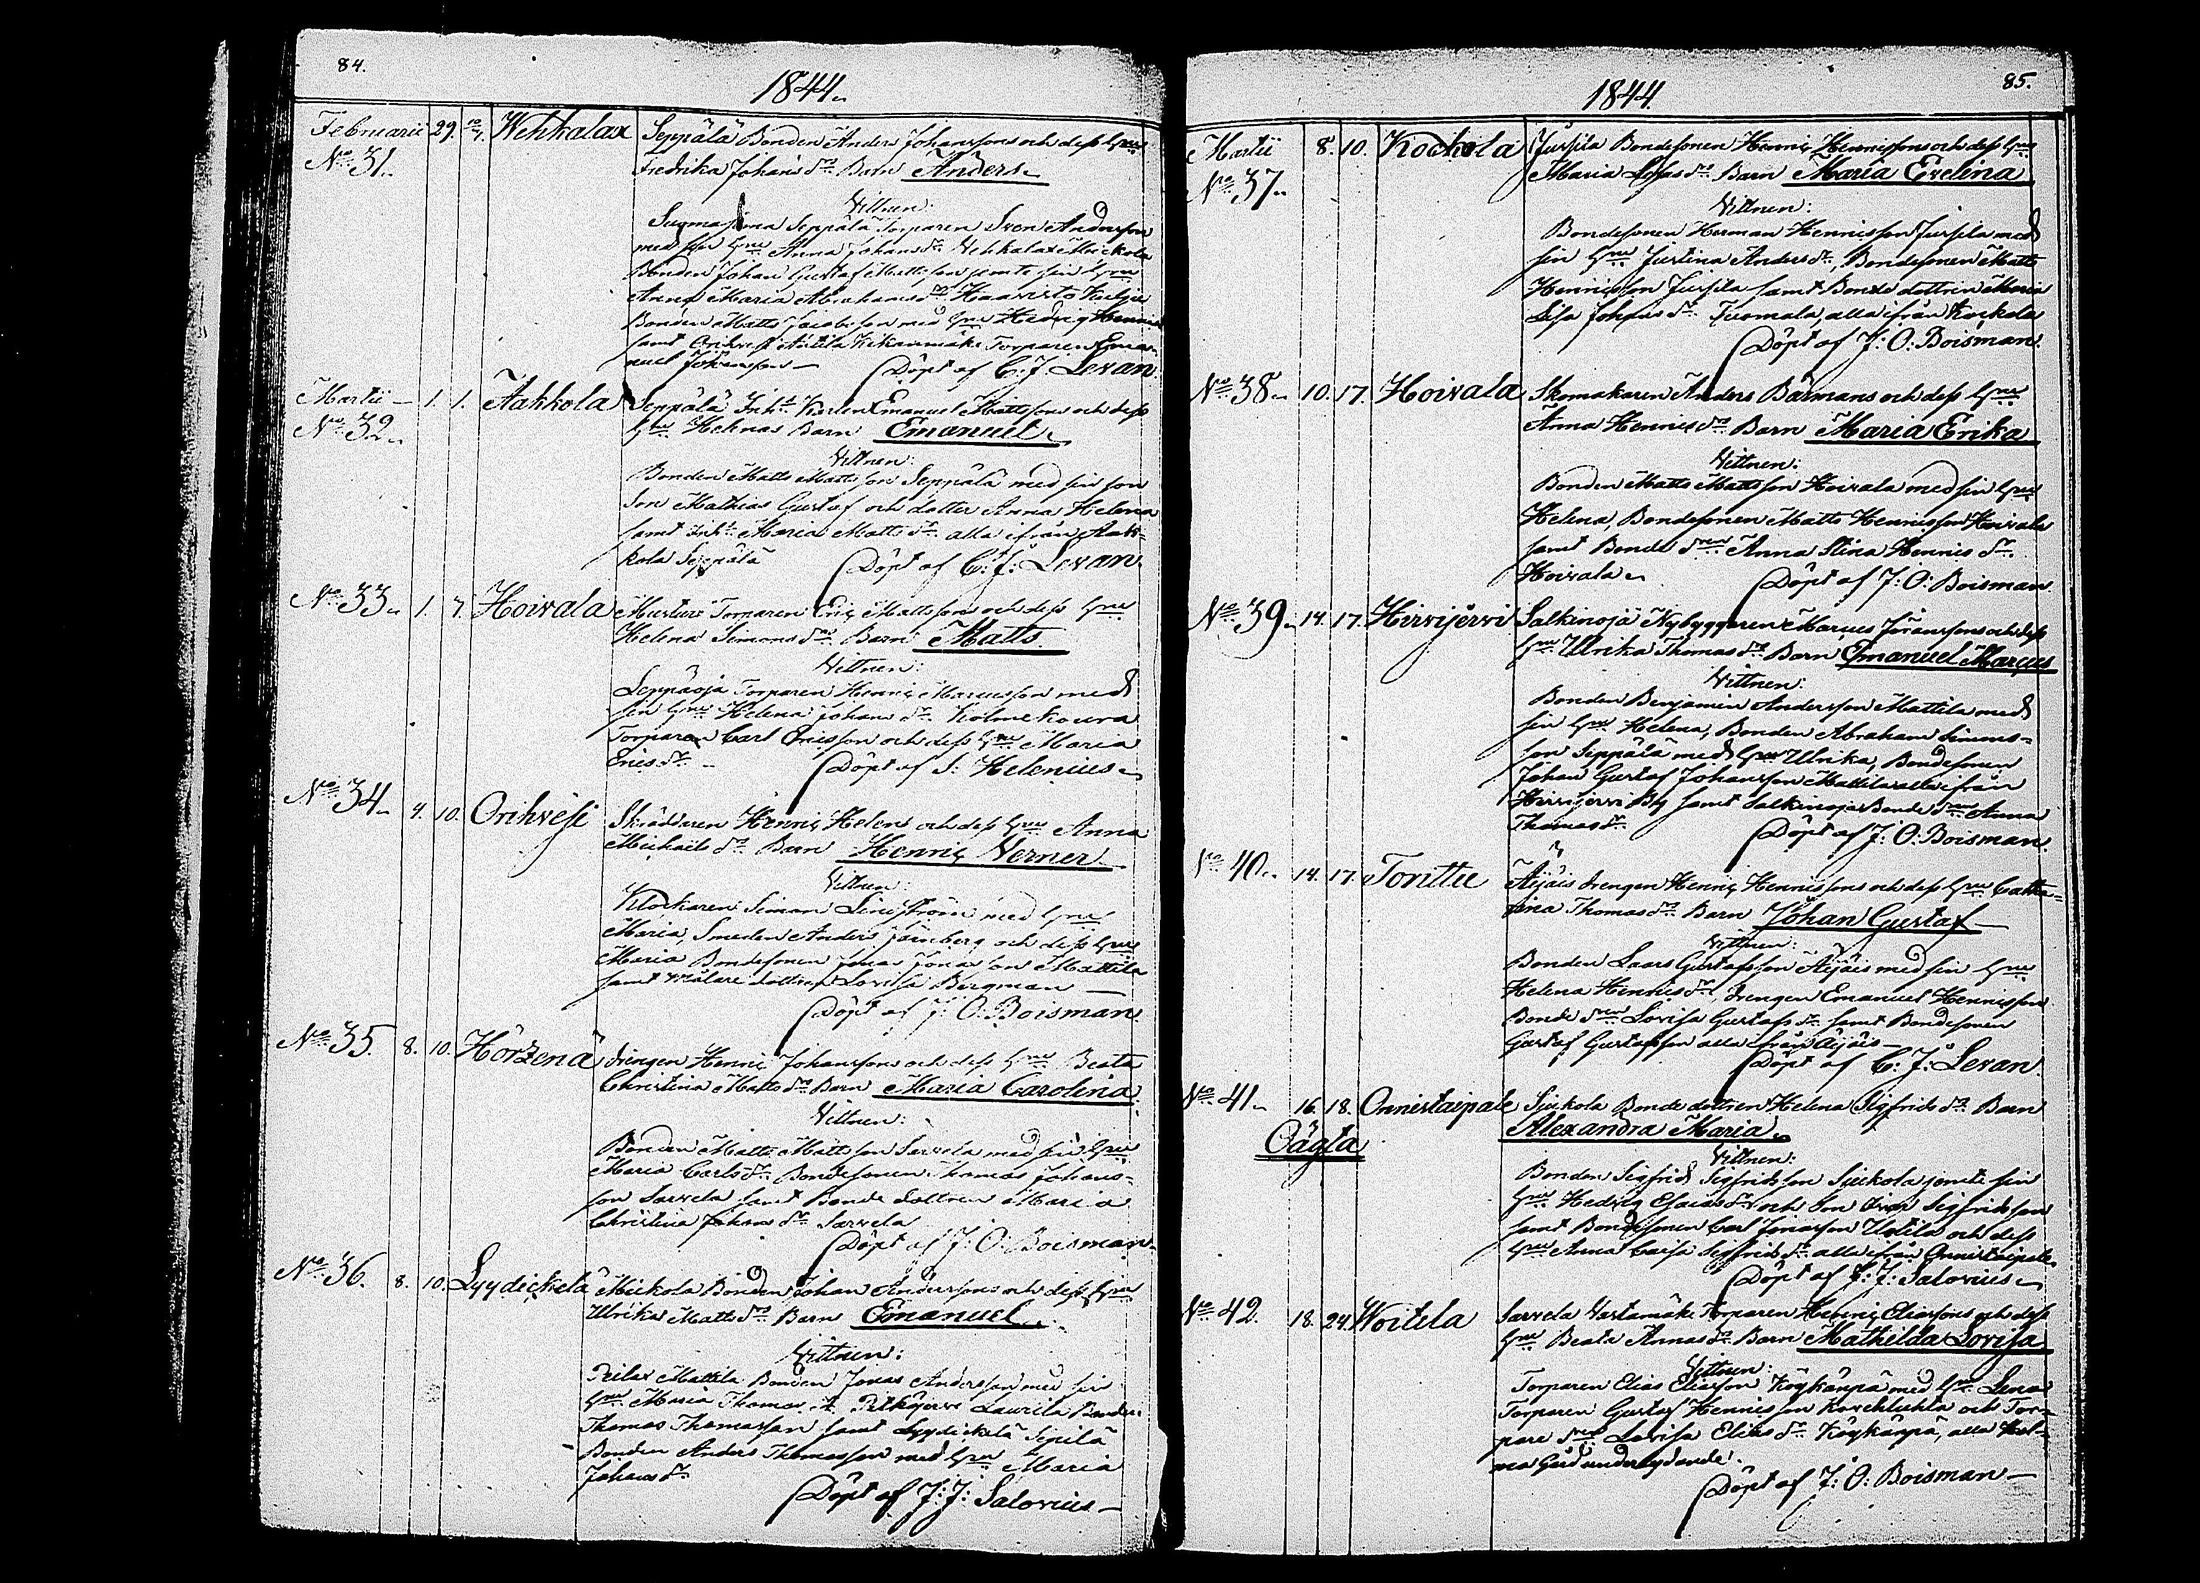 84.
1844.
Februarii 29. 10/3. Wehkalax Seppälä Bonden Anders Johanssons och dess Hru
No 31. Fredrika Johans dr Barn Anders
Vittnen:
Seppälä Torparen Sven Andersson
med sin Hru Anna Johans dr Vehkalax Mickola
Bonden Johan Gustaf Mattsson jemte sin Hru
Anna Maria Abrahams dr Haavisto
Bonden Matts Jacobsson med Hru Hedvig
samt Orihvesi Anttila Torparen Ema-
nuel Johansson Döpt af C. J. Levan.
Martii 1. 1. Aakkola Seppälä Inh. Karlen Emanuel Mattssons och dess
No 32. Hru Helenas Barn Emanuel
Vittnen:
Bonden Matts Mattsson Seppälä med sin son
Son Mathias Gustaf och dotter Anna Helena
samt Inh. Maria Matts dr alla ifrån Aak-
kola Seppälä Döpt af C. J. Levan
No 33. 1. 7. Hoivala Torparen Eric Mattssons och dess Hru
Helena Simons dr Barn Matts
Vittnen:
Leppäoja Torparen Henric Marcusson med
sin Hru Helena Johans dr Kolmekoura
Torparen Carl Ericsson och dess Hru Maria
Erics dr Döpt af S. Helenius
No 34. 4. 10. Orihvesi Skräddaren Henric Helens och dess Hru Anna
Michaels dr Barn Henric Verner
Vittnen:
Klockaren Simon Lindström med Hru
Maria, Smeden Anders Järnberg och dess Hru
Maria Bondesonen Jonas Jonasson Mattila
samt Målare dottren Lovisa Bergman
Döpt af J. O. Boisman.
No 35. 8. 10. Hörzenä drengen Henric Johanssons och dess Hru Beata
Christina Matts dr Barn Maria Carolina
Vittnen:
Bonden Matts Mattsson Sarvela med sin Hru
Maria Carls dr Bondesonen Thomas Johans-
son Sarvela samt Bonde dottren Maria
Christina Johans dr Sarvela
Döpt af J. O. Boisman.
No 36. 8. 10. Lyydickelä Mickola Bonden Johan Anderssons och dess Hru
Ulrika Matts dr Barn Emanuel
Vittnen:
Mattila Bonden Jonas Andersson med sin
Hru Maria Thomas dr Pitkäjervi Laurila Bonden
Thomas Thomasson samt Lyydickelä Sipilä
Bonden Anders Thomasson med Hru Maria
Johans dr
Döpt af J. J. Salovius
85.
1844.
Martii 8. 10. Kockola Jussila Bondesonen Henric Henricssons och dess Hru
No 37. Maria Lisas dr Barn Maria Evelina
Vittnen:
Bondesonen Herman Henricsson Jussila med
sin Hru Justina Anders dr, Bondesonen Matts
Henricsson Jussila samt Bonde dottren Maria
Lisa Johans dr Tuomala, alla ifrån Kockola
Döpt af J. O. Boisman.
No 38. 10. 17. Hoivala Skomakaren Anders Bärmans och dess Hru
Anna Henrics dr Barn Maria Erika
Vittnen:
Bonden Matts Mattsson Hoivala med sin Hru
Helena, Bondesonen Matts Henricsson Hoivala
samt Bonde dren Anna Stina Henrics dr
Hoivala Döpt af J. O. Boisman.
No 39. 14. 17. Hirvijervi Salkinoja Nybyggaren Marcus Göranssons och dess
Hru Ulrika Thomas dr Barn Emanuel Marcus
Vittnen:
Bonden Benjamin Andersson Mattila med
sin Hru Helena, Bonden Abraham Simons-
son Seppälä med Hru Ulrika, Bondesonen
Johan Gustaf Johansson Mattila alla ifrån
Hirvijervi By samt Salkinoja Bonde dren Anna
Thomas dr Döpt af J. O. Boisman.
No 40. 14. 17. Torittu Äijäis drengen Henric Henricssons och dess Hru Catha-
rina Thomas dr Barn Johan Gustaf
Vittnen:
Bonden Lars Gustafsson Äijäis med sin Hru
Helena Henrics dr, drengen Emanuel Henricsson
Bonde dren Lovisa Gustafs dr samt Bondesonen
Gustaf Gustafsson alla ifrån Äijäis
Döpt af C. J. Levan.
No 41. 16. 18. Onnistaipale Siukola Bonde dottren Helena Sigfrids dr Barn
Oägta Alexandra Maria
Vittnen:
Bonden Sigfrid Sigfridsson Siukola jemte sin
Hru Hedvig Esaias dr och Son Ivar Sigfridsson
samt Bondesonen Carl Jonasson Uotila och dess
Hru Anna Caisa Sigfrids dr alla ifrån Onnistaipale
Döpt af J. J. Salovius
No 42. 18. 24. Woitila Sarvela Torparen Henric Eliassons och dess
Hru Beata Annas dr Barn Mathilda Lovisa
Vittnen:
Torparen Elias Eliasson Köykänpä med Hru Lena
Torparen Gustaf Henricsson och Tor-
pare dren Lovisa Elias dr Köykänpä, alla
Gård underlydande.
Döpt af J. O. Boisman